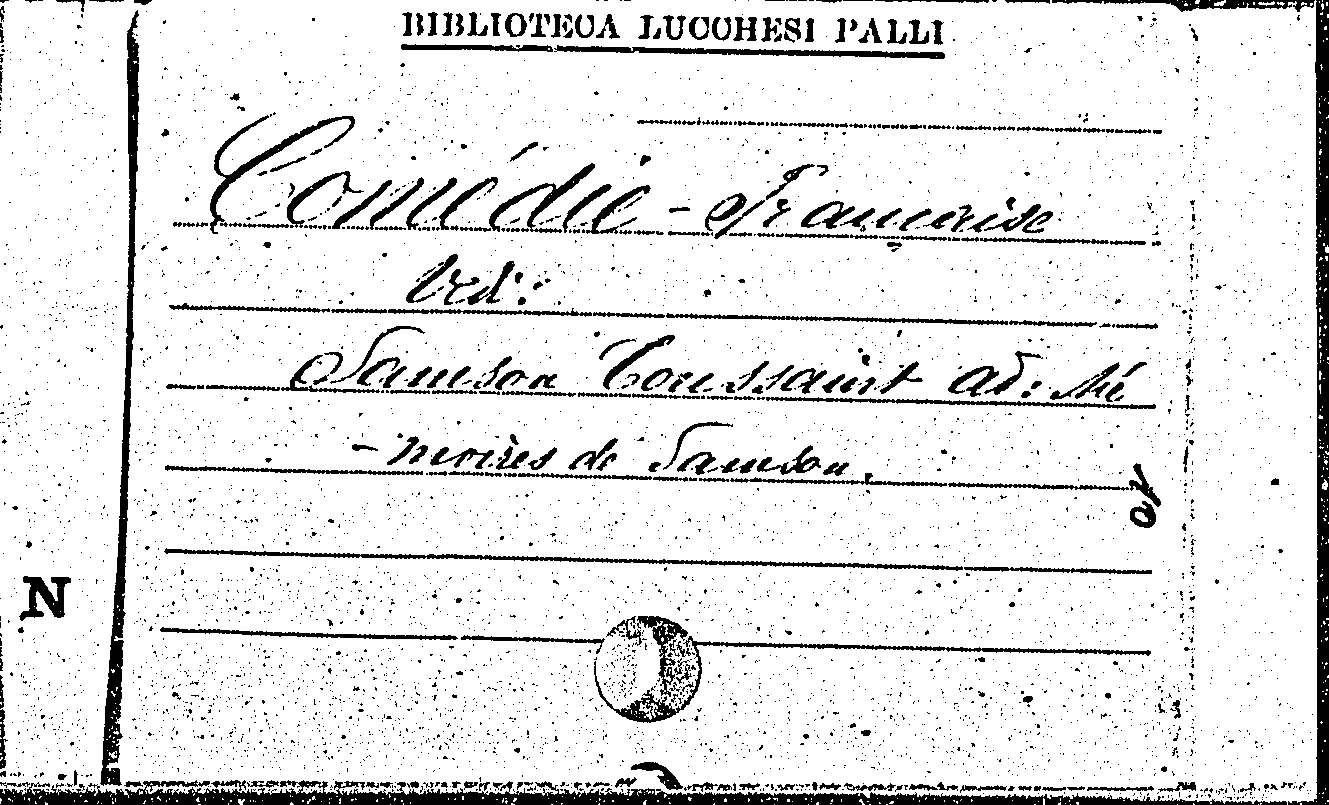 BIBLIOTECA LUCCHESI PALLI
Comédie-Française
Ved:
Samson Toussaint ad: Mé
-moires de Samson.
N